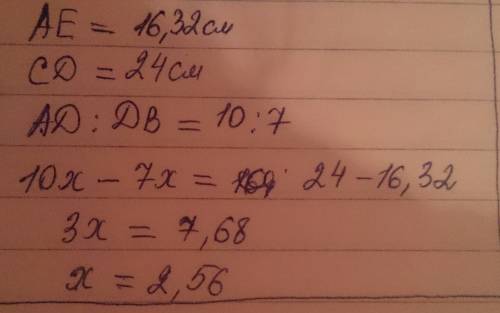 AE = 16,32см
CD = 24см
AD : DB = 10 : 7
10x - 7x = 24 - 16,32
3x = 7,68
x = 2,56